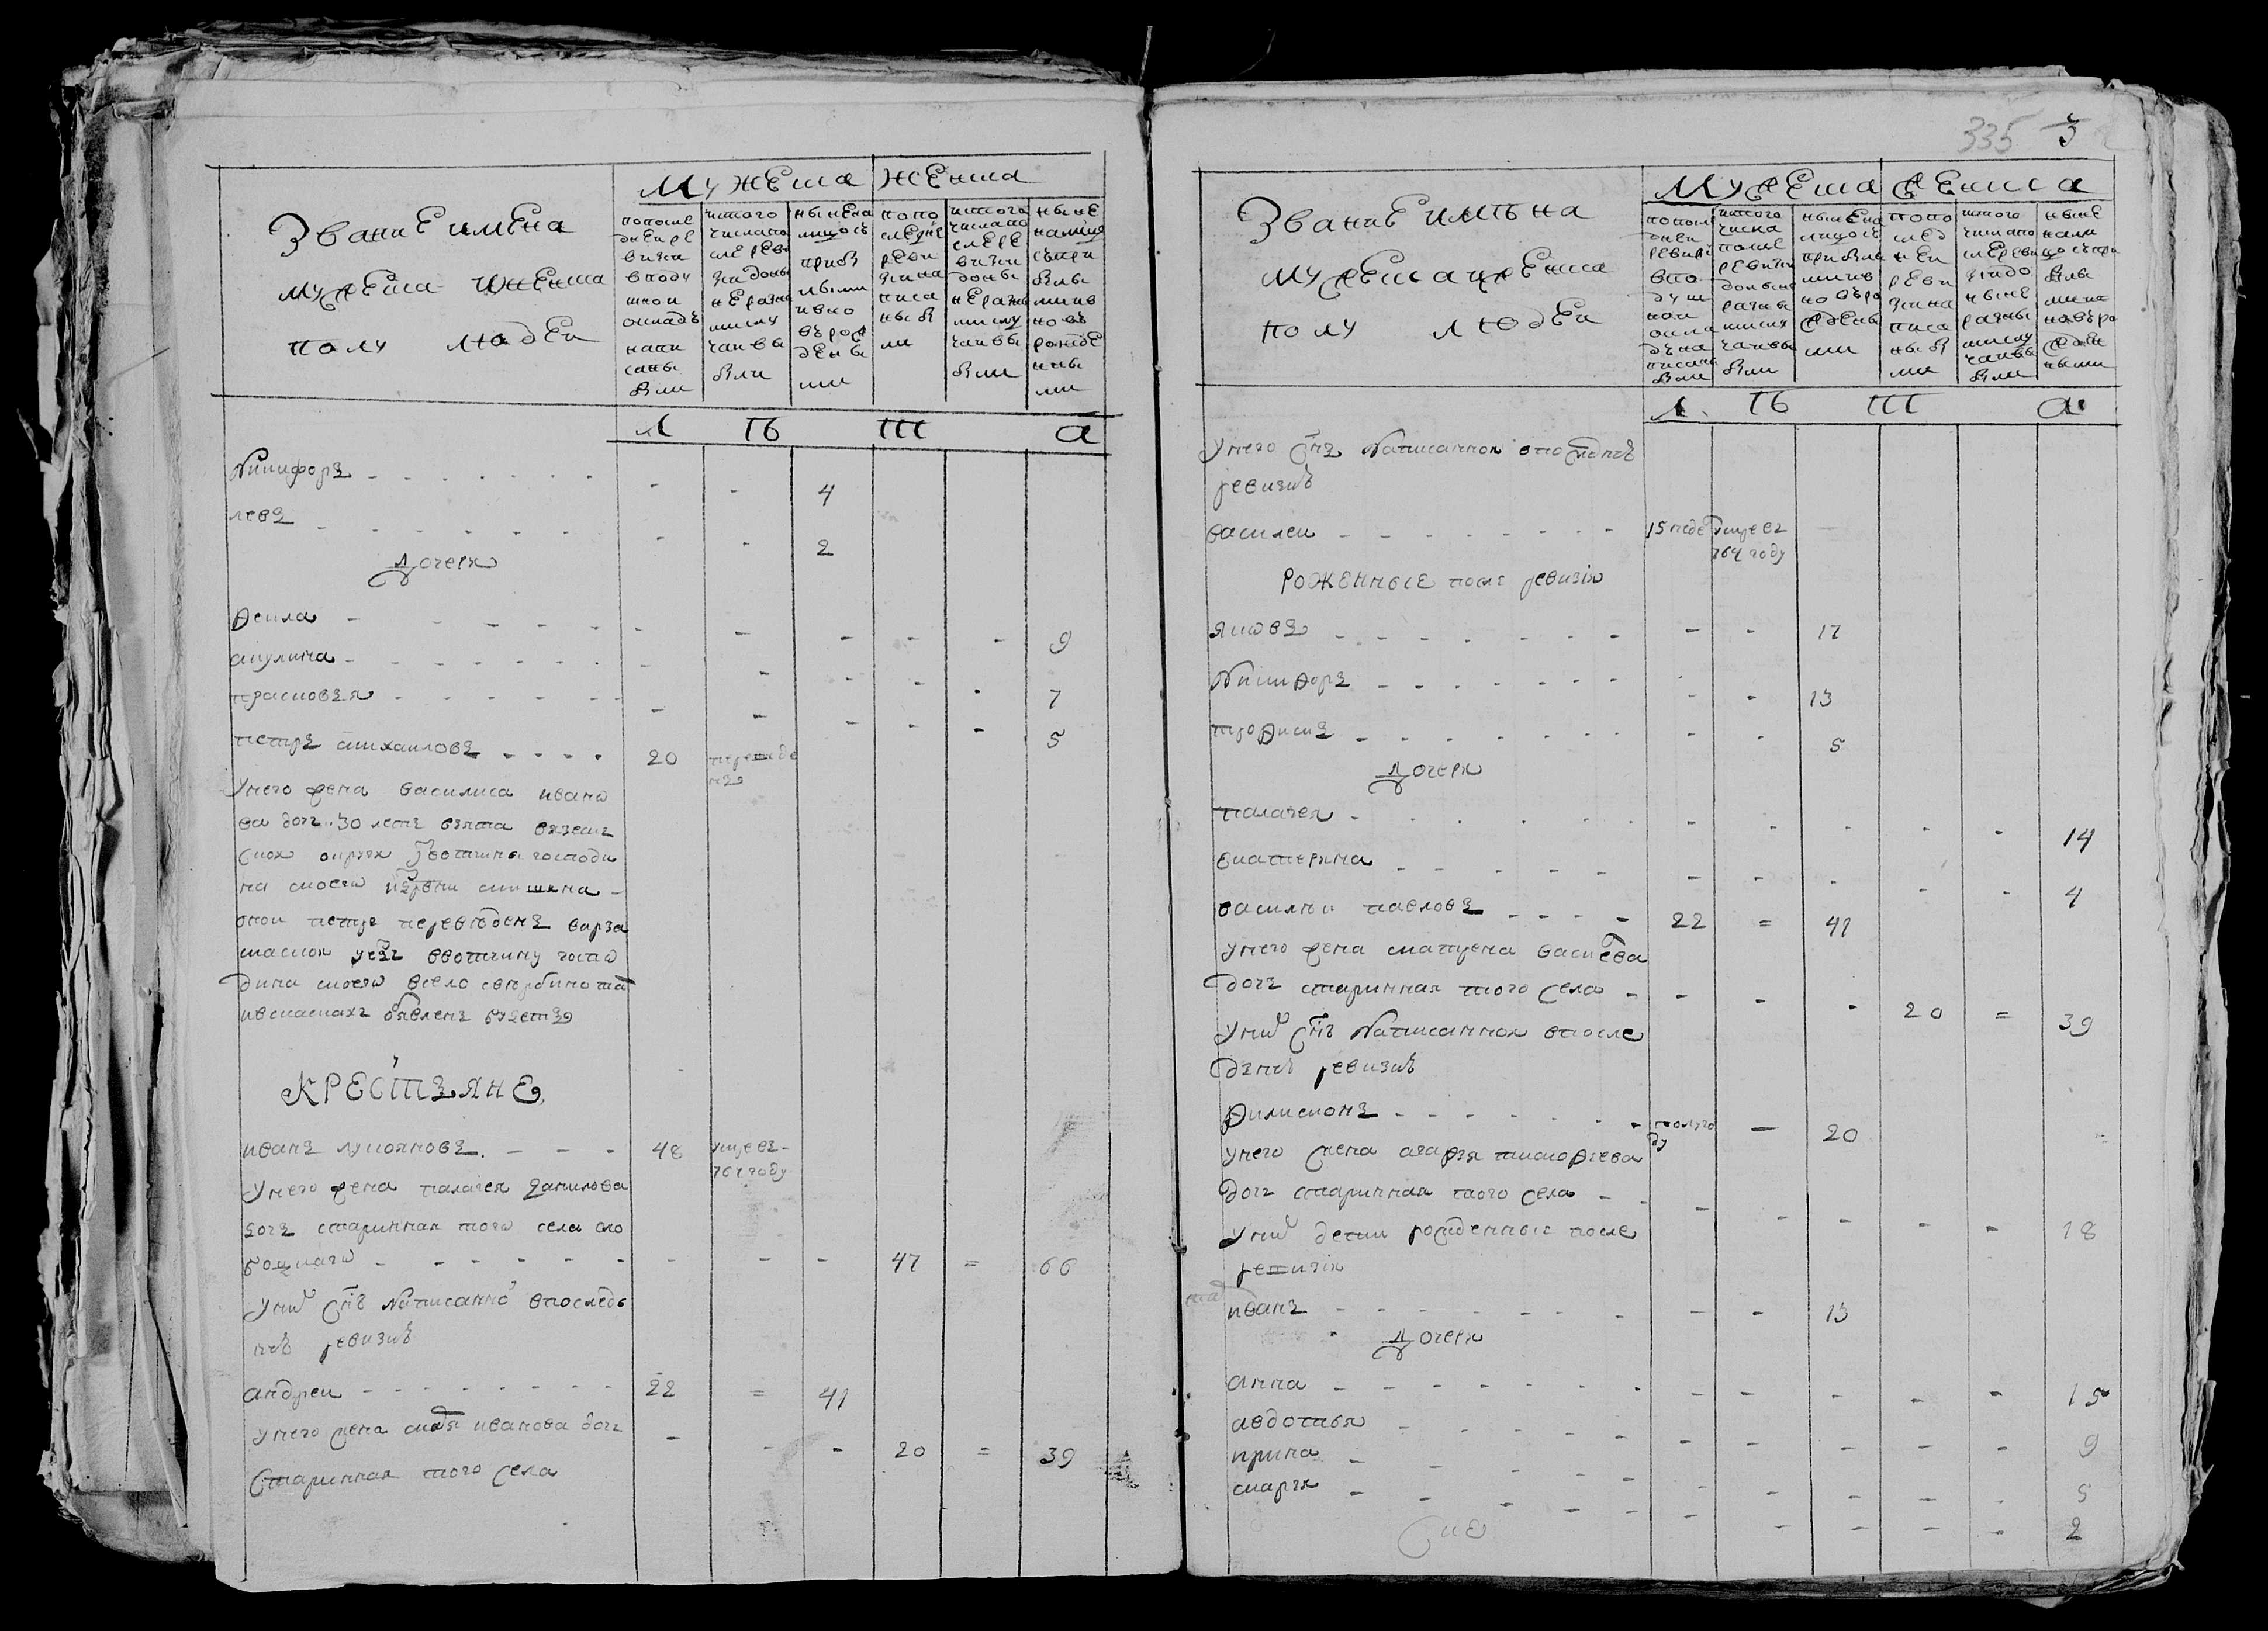 335 3
Звание имена
мужеска и женска
полу людеи
мужеска женска
по после
днеи ре
визии
в поду
шнои
окладъ
напи
саны
были
ис того
числа по
сле реви
зии до ны
не разны
ми слу
чаи вы
были
ныне на
лицо съ
прибы
лыми
и вно
въ рож
денны
ми
по по
следне
реви
зии на
писа
ны бы
ли
ис того
числа по
сле ре
визии
до ны
не разны
ми слу
чаи вы
были
ныне
на лицо
съ при
былы
ми и в
новъ
рожде
нны
ми
л ѣ т а
Никифоръ 4
левъ 2
Дочери
Фекла 9
акулина 7
прасковья 5
петръ михаиловъ 20 переведе
нъ
у него жена василиса ивано
ва дочь 30 летъ взята
вотчины господи
на моего
онои петръ переведенъ варза
маскои уездъ в вотчину госпо
дина моего в село
КРЕСТЬЯНЕ
иванъ лукояновъ 48 умре въ
764 году
у него жена палагея данилова
дочь старинная того села сло
боцкаго 47 = 66
у них снъ написанной в последъ
нѣ ревизиѣ
андреи 22 = 41
у него жена иванова дочь 20 = 39
старинная того села
Звание имѣна
мужеска и женска
полу людеи
мужеска женска
по после
днеи
ревизи
в по
душ
нои
окла
дъ на
писаны
были
ис того
числа
после
ревизии
до ныне
разны
ми слу
чаи вы
были
ныне на
лицо съ
прибылы
ми и в
новъ ро
жденны
ми
по по
след
неи
реви
зии на
писа
ны бы
ли
ис того
числа по
сле реви
зии до
ныне
разны
ми слу
чаи вы
были
ныне
на ли
цо съ при
былы
ми и в
новъ ро
жден
ными
л ѣ т а
у него снъ написаннои в последнеѣ
ревизиѣ
василеи 15 неде умре въ
764 году
РОЖЕННЫЕ после ревизіи
яковъ 17
Никифоръ 13
трофимъ 5
Дочери
палагея 14
екатерина 4
василеи павловъ 22 = 41
у него жена матрена васиева
дочь старинная того села 20 = 39
у них снъ написаннои в после
днеѣ ревизиѣ
Филимонъ полуго
ду 20
у него жена агафья тимофеева
дочь старинная того села 18
у них дети рожденные после
ревизіи
иванъ 13
Дочери
анна 15
авдотья 9
ирина 5
марья 2